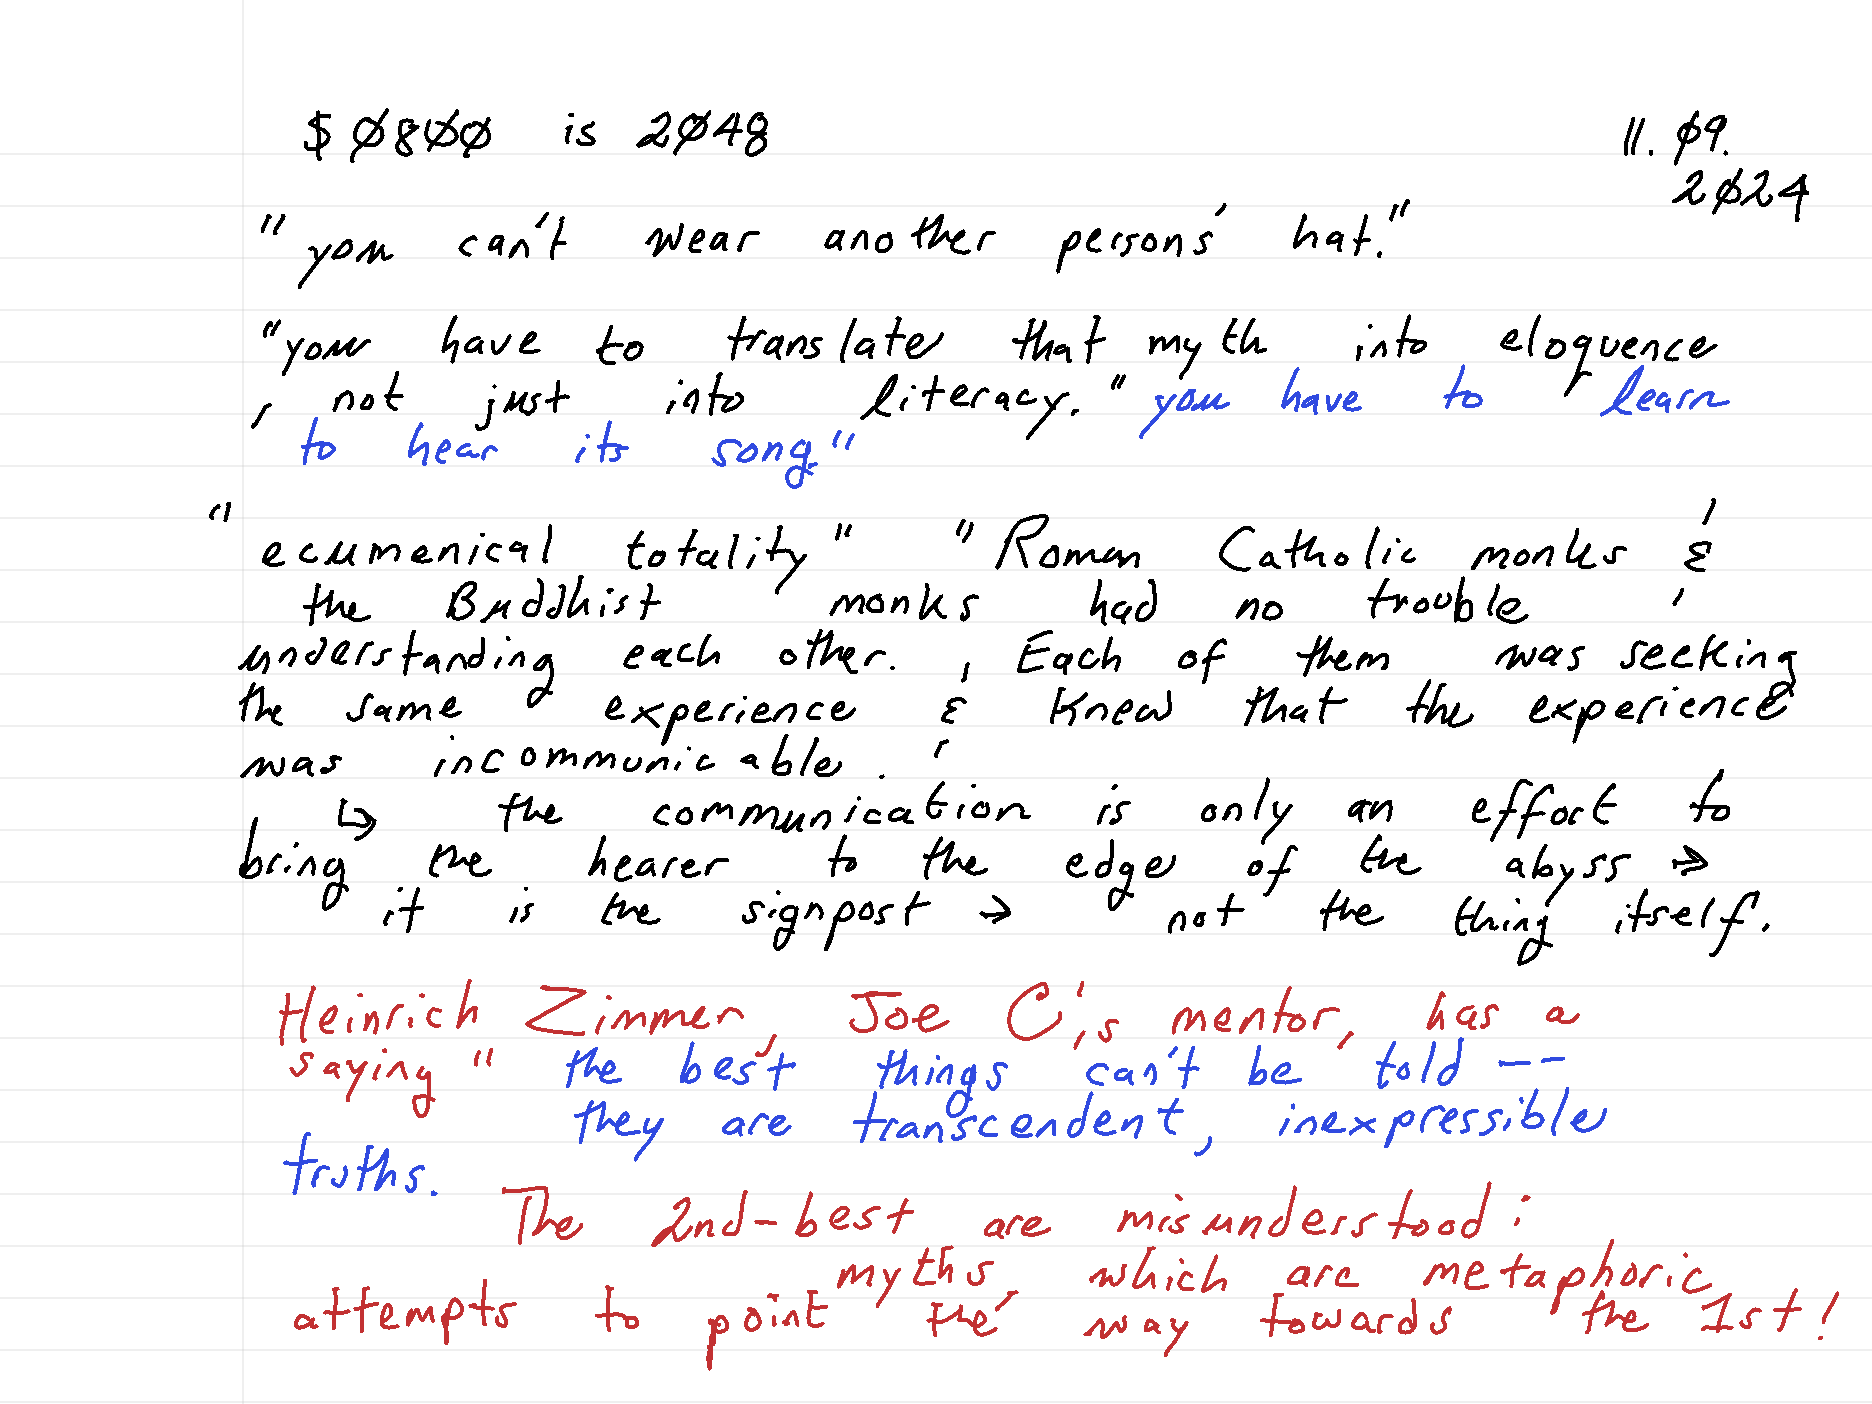 $0800 is 2048
11.09.
2024
"you can't wear another person's hat."
"you have to translate that myth into eloquence
, not just into literacy." you have to learn
to hear its song."
"ecumenical totality" "Roman Catholic monks &
the Buddhist monks had no trouble
understanding each other. Each of them was seeking
the same experience & knew that the experience
was incommunicable.
↳ the communication is only an effort to
bring the hearer to the edge of the abyss →
it is the signpost → not the thing itself.
Heinrich Zimmer, Joe C's mentor, has a
saying " the best things can't be told --
they are transcendent, inexpressible
truths.
The 2nd-best are misunderstood:
myths, which are metaphoric
attempts to point the way towards the 1st!